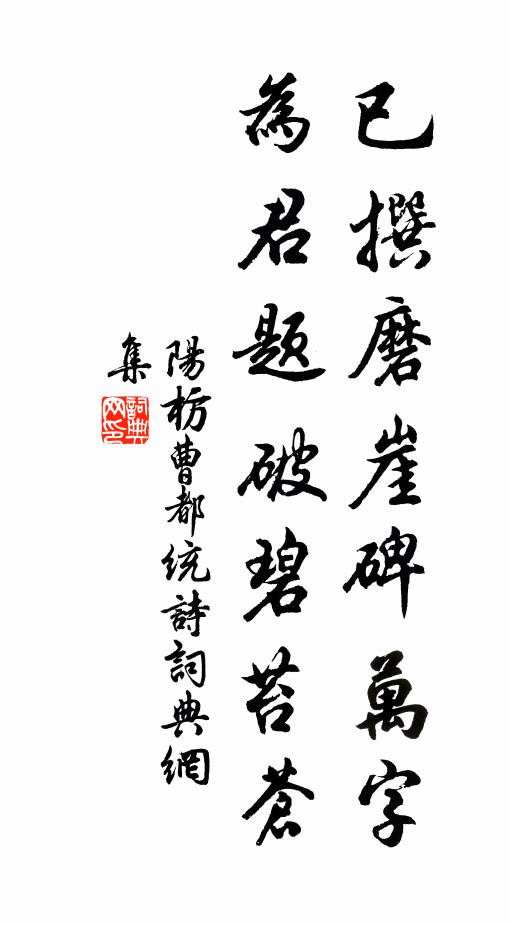 已撰磨崖碑萬字
為君題破碧苔蒼
陽枋曹都統詩詞典網
集
詞典網印